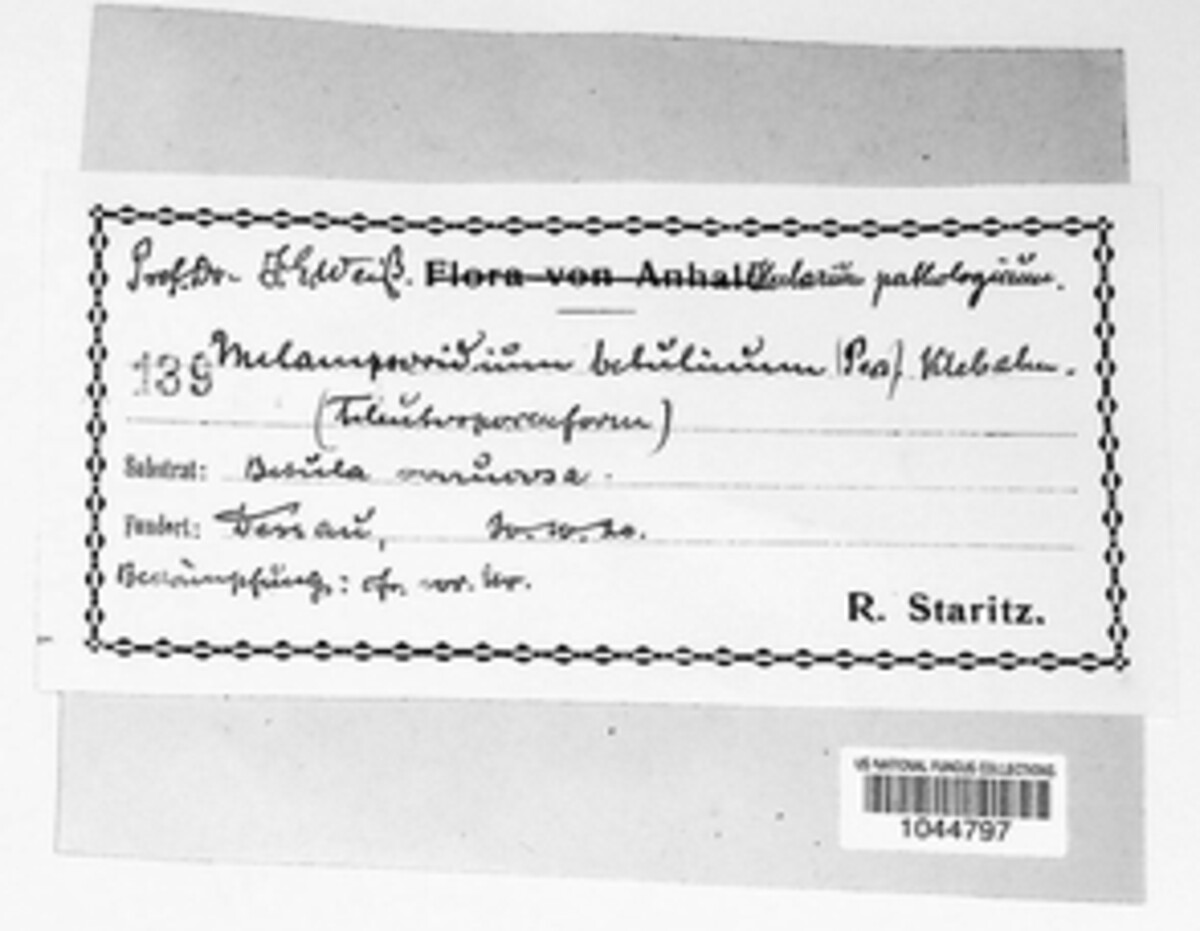 Prof. Dr. J. E. Weiß. Flora von Anhalt pathologicum.
139 Melampsoridium betulinum (Pers) Klebahn.
(Teleutosporenform)
Substrat: Betula verrucosa.
Fundort: Dessau,
Bekämpfung: cfr. vor. Nr.
R. Staritz.
US NATIONAL FUNGUS COLLECTIONS
1044797